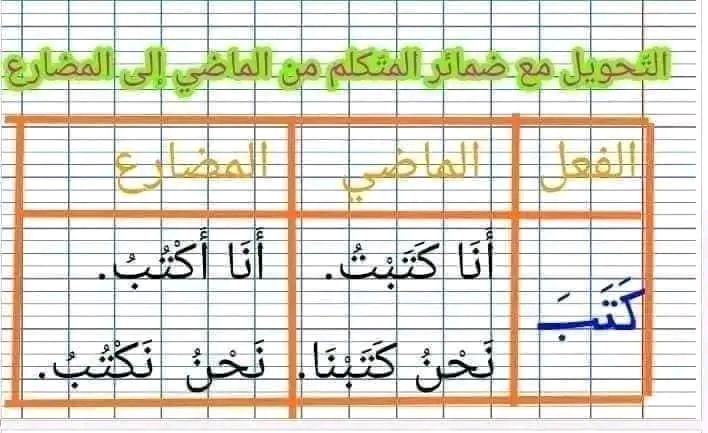 التّحويل مع ضمائر المتكلم من الماضي إلى المضارع
الفعل الماضي المضارع
أَنَا كَتَبْتُ. أَنَا أَكْتُبُ.
كَتَبَ
نَحْنُ كَتَبْنَا. نَحْنُ نَكْتُبُ.